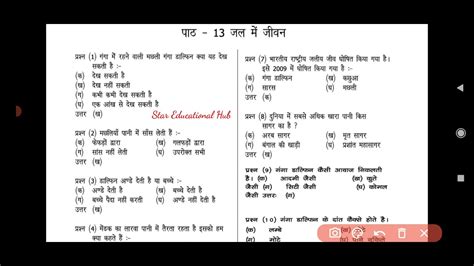 पाठ - 13 जल में जीवन
प्रश्न (1) गंगा में रहने वाली मछली गंगा डाल्फिन क्या यह देख
सकती है :-
(क) देख सकती है
(ख) देख नहीं सकती
(ग) कभी कभी देख सकती है
(घ) एक आंख से देख सकती है
उत्तर (ख)
Star Educational Hub
प्रश्न (2) मछलियाँ पानी में साँस लेती है :-
(क) फेफड़ों द्वारा (ख) गलफड़ों द्वारा
(ग) सांस नहीं लेती (घ) उपरोक्त सभी
उत्तर (ख)
प्रश्न (3) डाल्फिन अण्डे देती है या बच्चे :-
(क) अण्डे देती है (ख) बच्चे देती है
(ग) बच्चे पैदा नहीं करती (घ) अण्डे नहीं देती है
उत्तर (ख)
प्रश्न (4) मेंढक का लारवा पानी में तैरता रहता है इसको हम
क्या कहते हैं :-
प्रश्न (7) भारतीय राष्ट्रीय जलीय जीव घोषित किया गया है।
इसे 2009 में घोषित किया गया है :-
(क) गंगा डाल्फिन (ख) कछुआ
(ग) सारस (घ) मछली
उत्तर (क)
प्रश्न (8) दुनिया में सबसे अधिक खारा पानी किस
सागर का है ?
(क) अरब सागर (ख) मृत सागर
(ग) बंगाल की खाड़ी (घ) प्रशांत महासागर
उत्तर (ख)
प्रश्न (9) गंगा डाल्फिन कैसी आवाज निकालती
है। (क) आदमी जैसी (ख) कुत्ते
जैसी (ग) सिटी जैसी (घ) कोमल
जैसी उत्तर: (ग)
प्रश्न (10) गंगा डाल्फिन के दांत कैसे होते है।
(क) लम्बे (ख)
(ग) मोटे (घ)